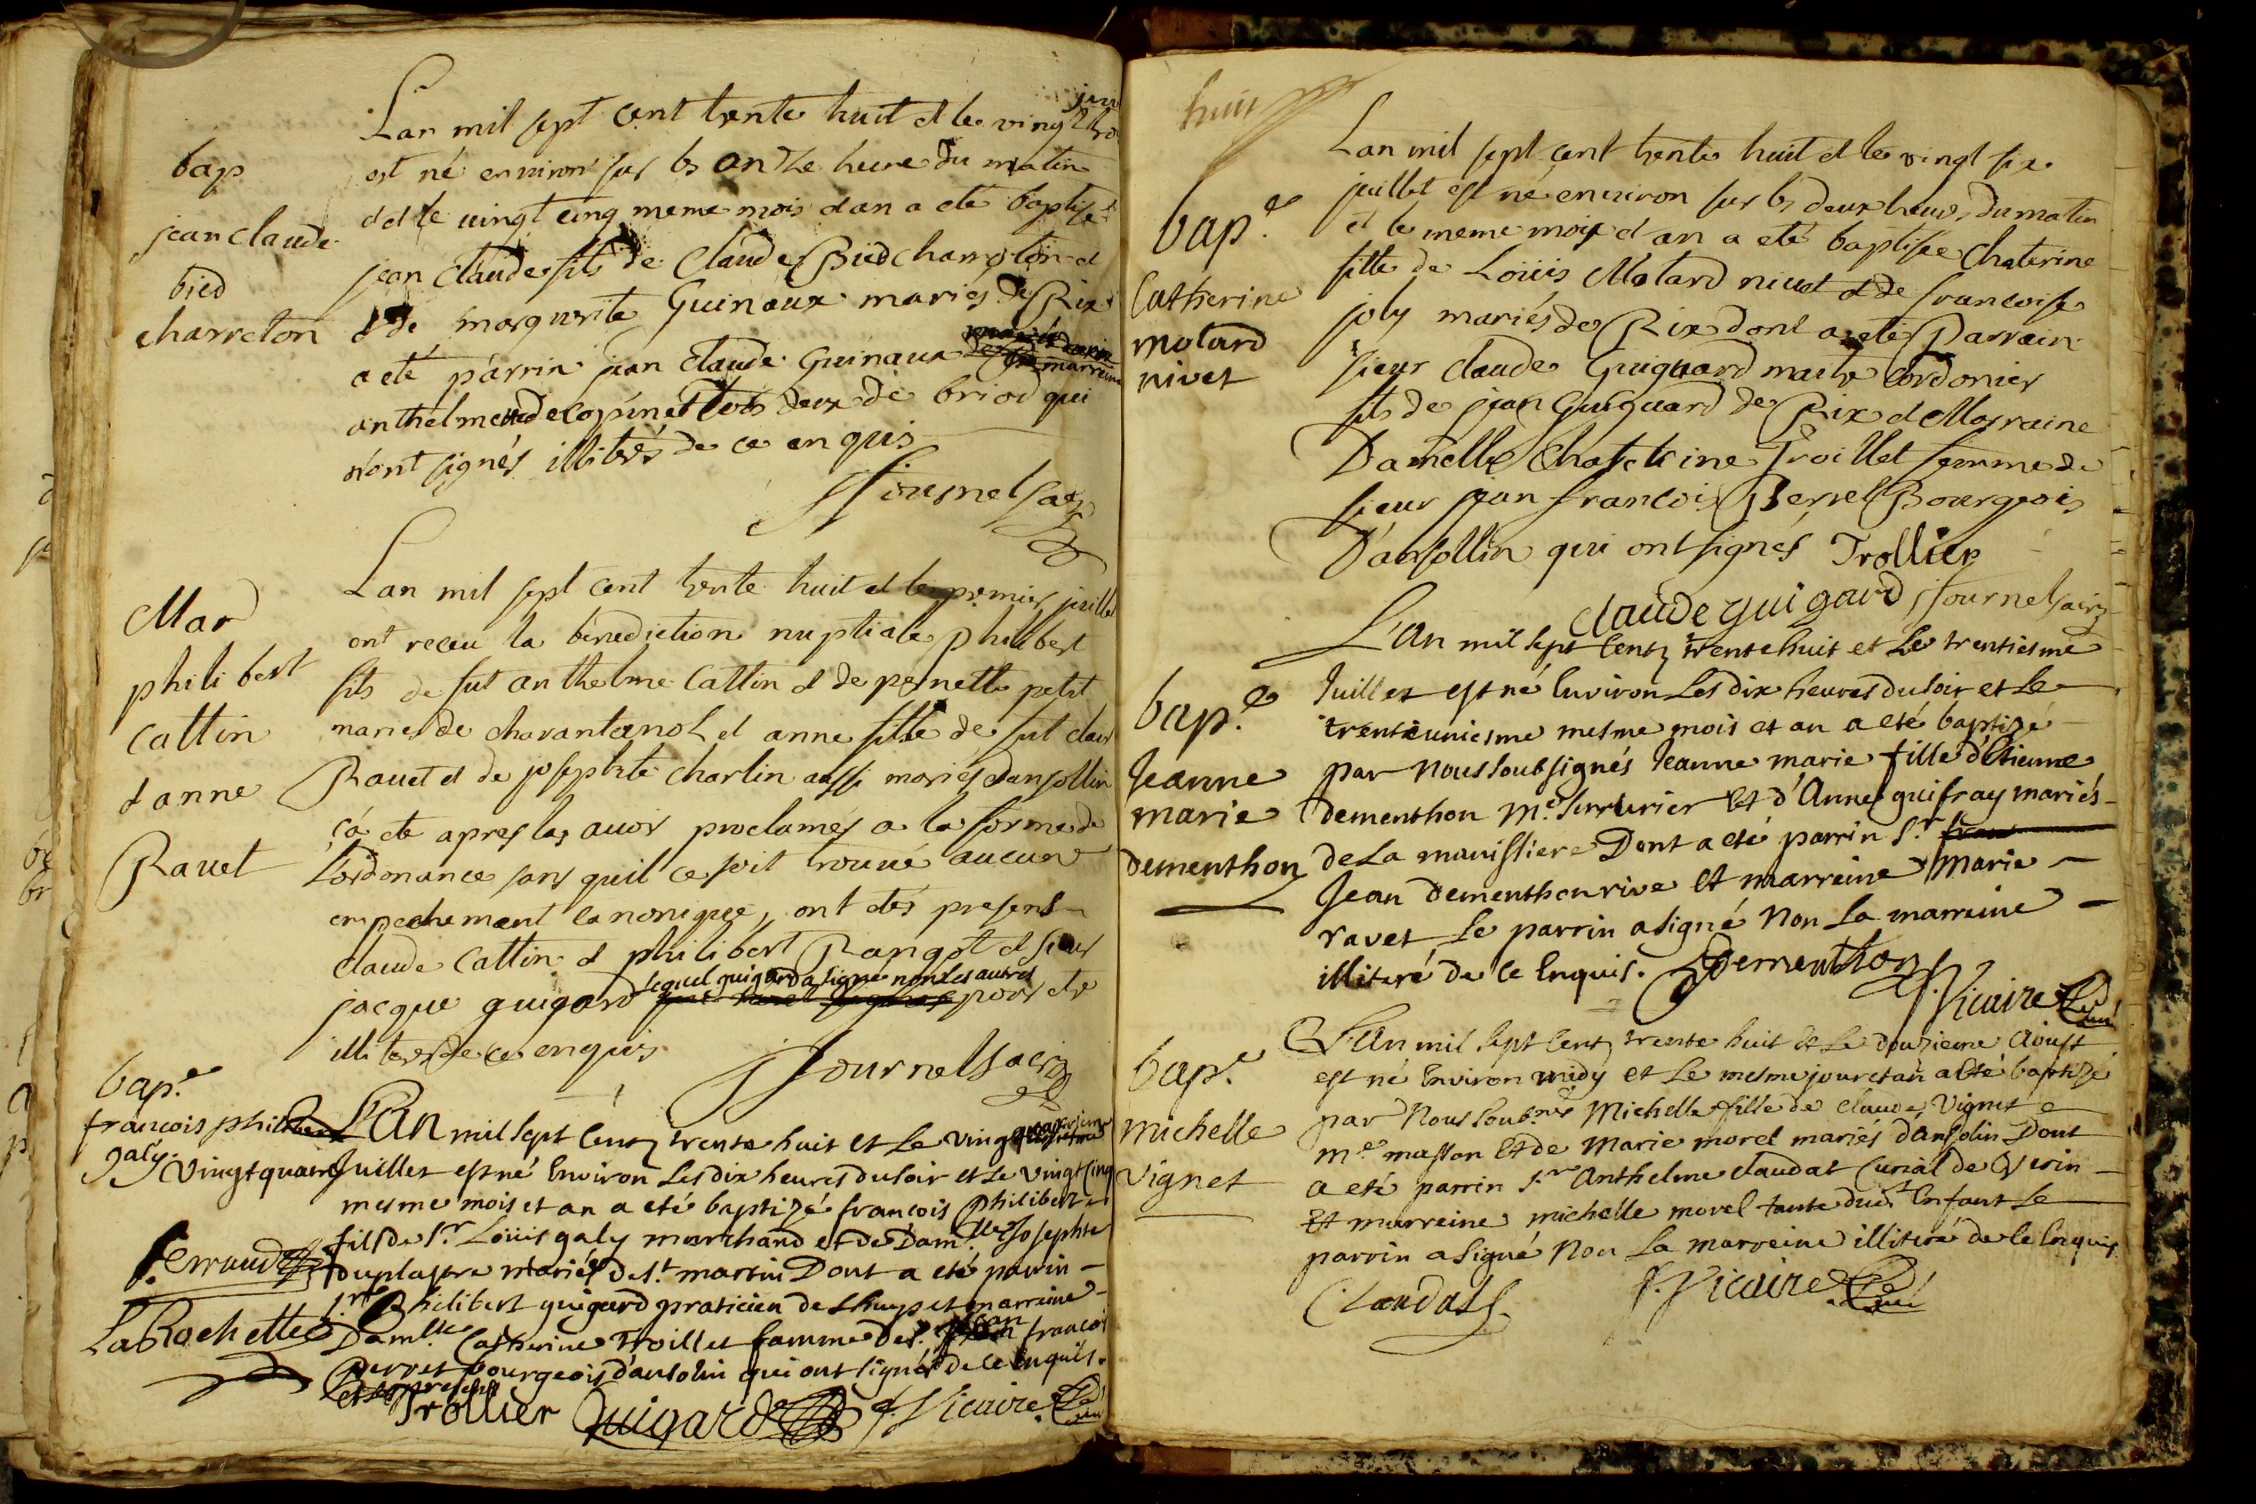 bap
jean claude
bied
charreton
Lan mil sept cent trente huit et le vingt troi juin
est né environ sur les onze heure du matin
et le vingt cinq meme mois et an a eté baptisé
jean claude fils de Claude Bied charreton et
de marguerite Guinaux mariés de Rix
a eté parrin jean claude Guinaux et marreine
anthelme de copinet tous deux de briord qui
n'ont signés illitrés de ce enquis
J Journel
Mar
philibert
Cattin
et anne
Ravet
Lan mil sept cent trente huit et le premier juillet
ont receu la benediction nuptiale philibert
fils de fut anthelme Cattin et de pernette petit
mariés de charantanol et anne fille de fut claude
Ravet et de josephte charlin aussi mariés dansollin
ça eté apres les avoir proclamés a la forme de
Lordonance sans quil ce soit trouvé aucun
empechement canonique, ont etés presens
claude Cattin et philibert Rangot et sieur
lequel guigard a signé non les autres
jacque guigard pour etre
illiterés de ce enquis
J Journel
bap.e
francois philibert
galy
L'An mil sept Cent trente huit et Le
vingtquatre Juillet est né Environ Les dix heures du soir et Le vingt Cinq
mesme mois et an a eté baptizé francois Philibert
fils de Sr. Loüis galy marchand et de Dam.lle Josephte
duplastre mariés de St. martin Dont a eté parrin
Sr. Philibert guigard praticien de Lhuys et marreine
Dam.lle Catherine Troillet famme de Sr. jean francoi
Perret bourgeois d'ansolin qui ont signés de ce Enquis.
et les presens
f. erraud
La Rochette
Trollier Guigard f. Vicaire
huit
bap.e
Catherine
motard
nivet
Lan mil sept cent trente huit et le vingt six
juillet est né environ sur les deux heures du matin
et le meme mois et an a eté baptisée Chaterine
fille de Loüis Motard nivet et de francoise
joly mariés de Rix dont a eté Parrain
sieur claude Guiguard maitre Cordonier
fils de jean Guiguard de Rix et Marraine
Damelle Chateterine Troillet femme de
sieur jean francois Perret Bourgeois
D'ansollin qui ont signés Trollier
claude guigard J Journel
bap.e
Jeanne
marie
Dementhon
L'An mil sept Cent trente huit et Le trentiesme
Juillet est né Environ Les dix heures du soir et Le
trenteuniesme mesme mois et an a eté baptizé
par Nous soubsignés Jeanne marie fille d'Etienne
dementhon M.e serrurier Et d'Anne guifray mariés
de La manissiere Dont a eté parrin Sr.
Jean dementhon rive et marreine Marie
ravet Le parrin a signé Non La marreine
illiteré de Ce Enquis. Dementhon
f. Vicaire
bap.e
Michelle
Vignet
L'An mil sept Cent trente huit Et Le douzieme Aoust
est né Environ midy et Le mesme jour et an a Eté baptizé
par Nous soub.nes Michelle fille de Claude Vignet
M.e masson Et de Marie morel mariés d'ansolin Dont
a eté parrin Sr. Anthelme claudat Curial de Virin
Et marreine michelle morel tante dud.t Enfant Le
parrin a signé Non La marreine illiteré de Ce Enquis
Claudat f. Vicaire